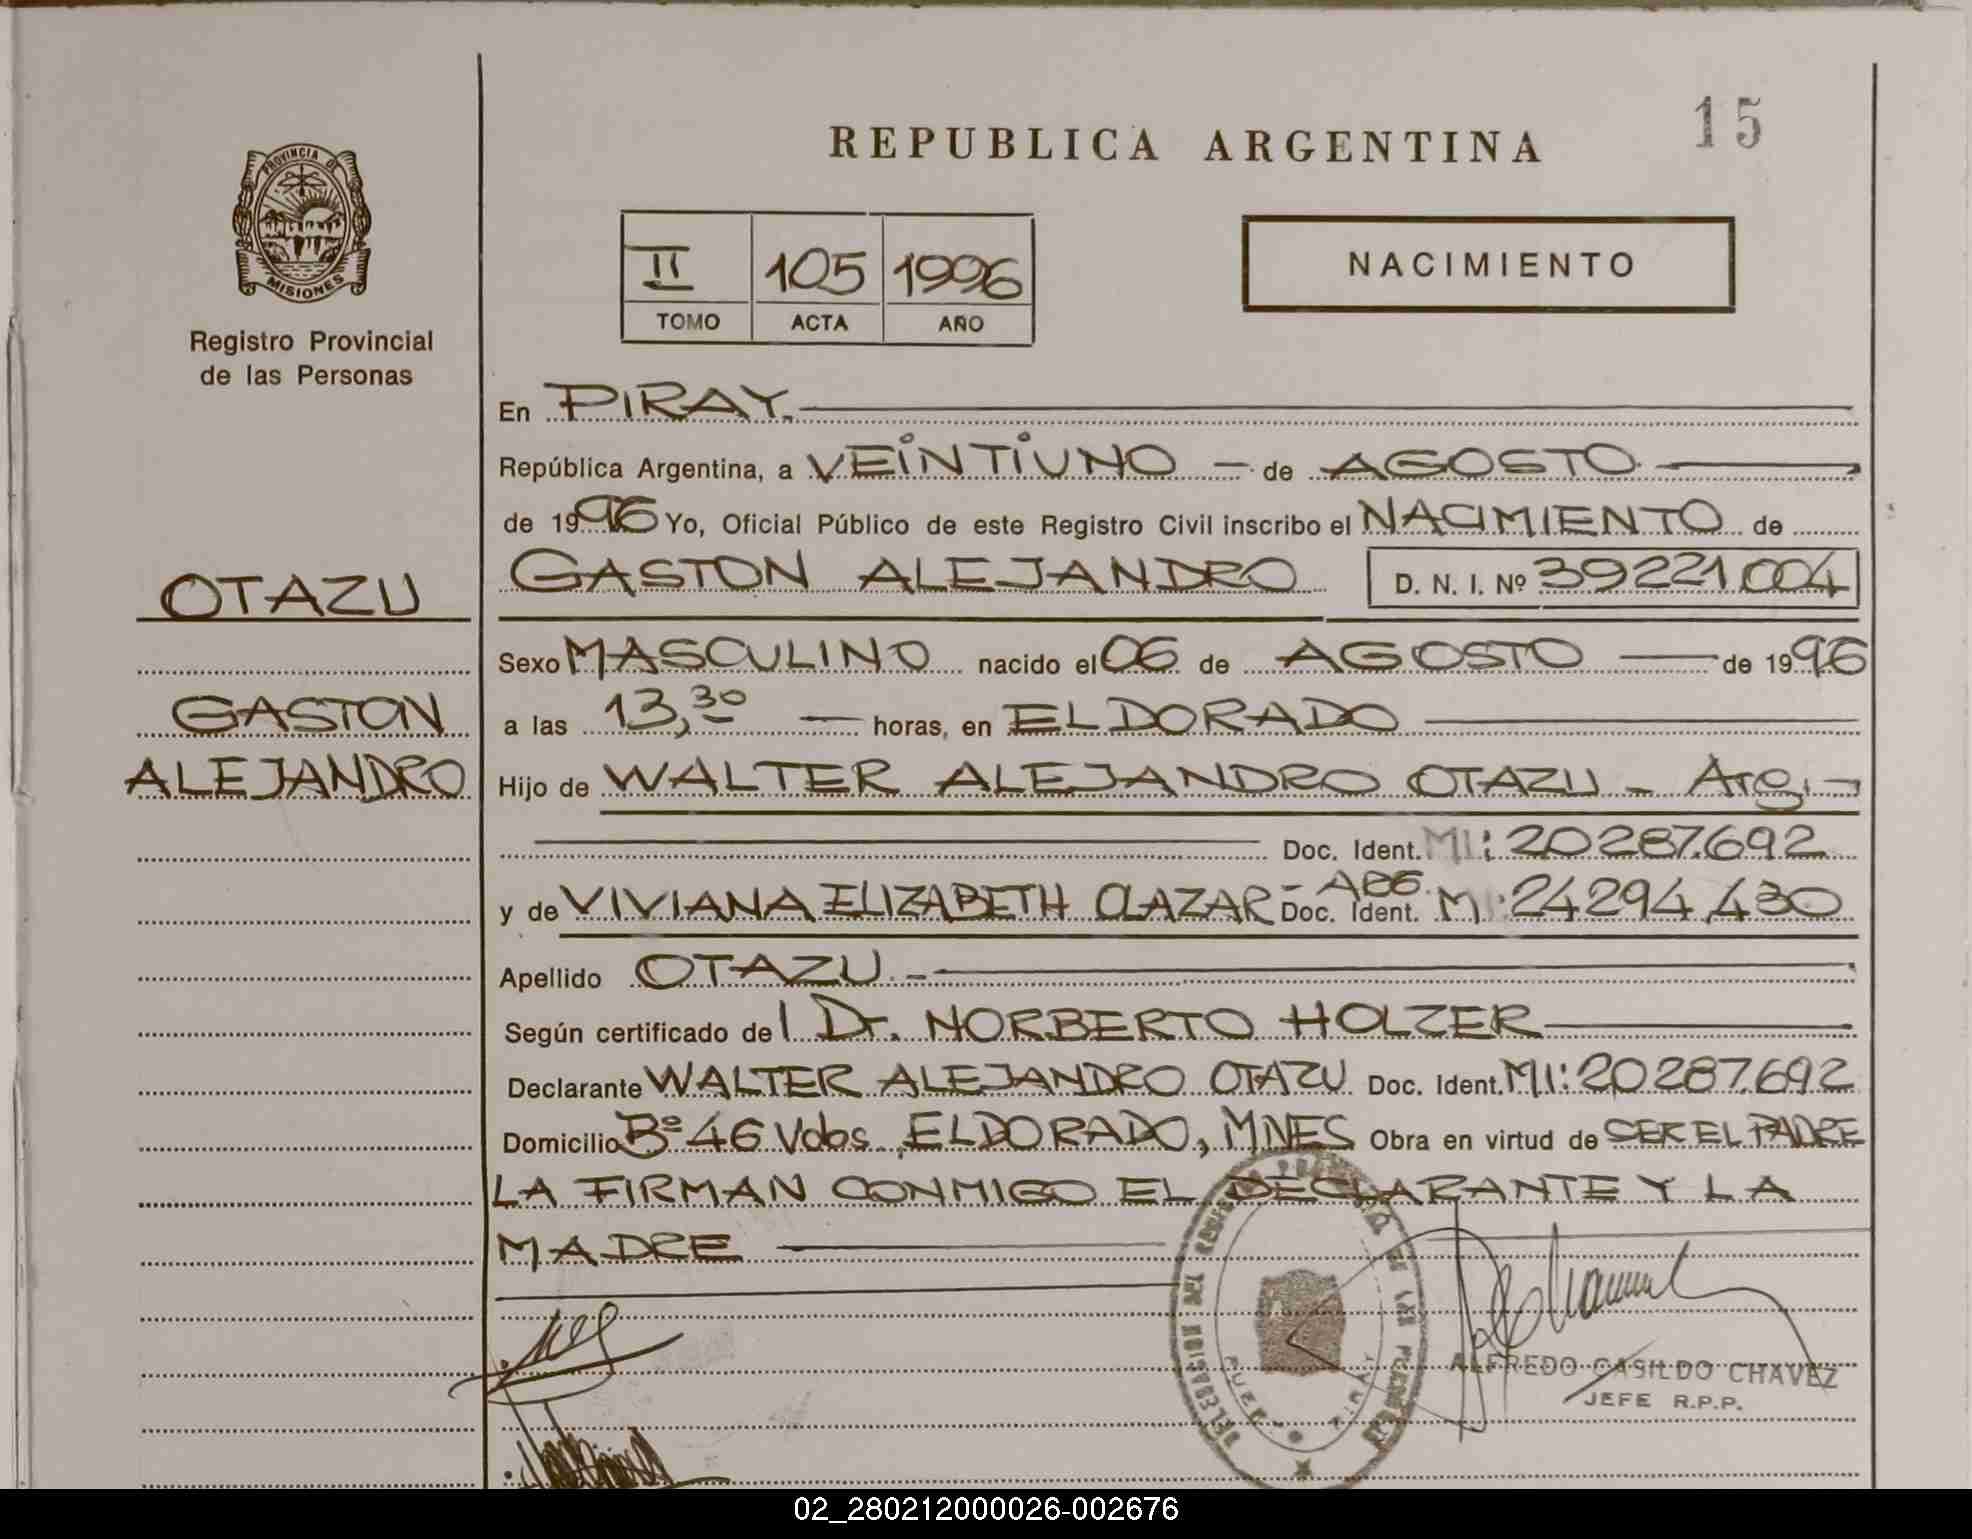 15
REPUBLICA ARGENTINA
PROVINCIA DE
MISIONES
Registro Provincial
de las Personas
II 105 1996
TOMO ACTA AÑO
NACIMIENTO
En PIRAY.
República Argentina, a VEINTIUNO - de AGOSTO
de 1996 Yo, Oficial Público de este Registro Civil inscribo el NACIMIENTO de
OTAZU
GASTON ALEJANDRO D. N. I. Nº 39221.004
Sexo MASCULINO nacido el 06 de AGOSTO de 1996
GASTON
a las 13,30 horas, en ELDORADO
ALEJANDRO
Hijo de WALTER ALEJANDRO OTAZU - Arg.
Doc. Ident. MI: 20287.692
y de VIVIANA ELIZABETH OLAZAR - ARG. Doc. Ident. MI: 24294.430
Apellido OTAZU
Según certificado del Dr. NORBERTO HOLZER
Declarante WALTER ALEJANDRO OTAZU Doc. Ident. MI: 20287.692
Domicilio Bº 46 Vdas. ELDORADO, MNES Obra en virtud de SER EL PADRE
LA FIRMAN CONMIGO EL DECLARANTE Y LA
MADRE
ALFREDO CASILDO CHAVEZ
JEFE R.P.P.
02_280212000026-002676